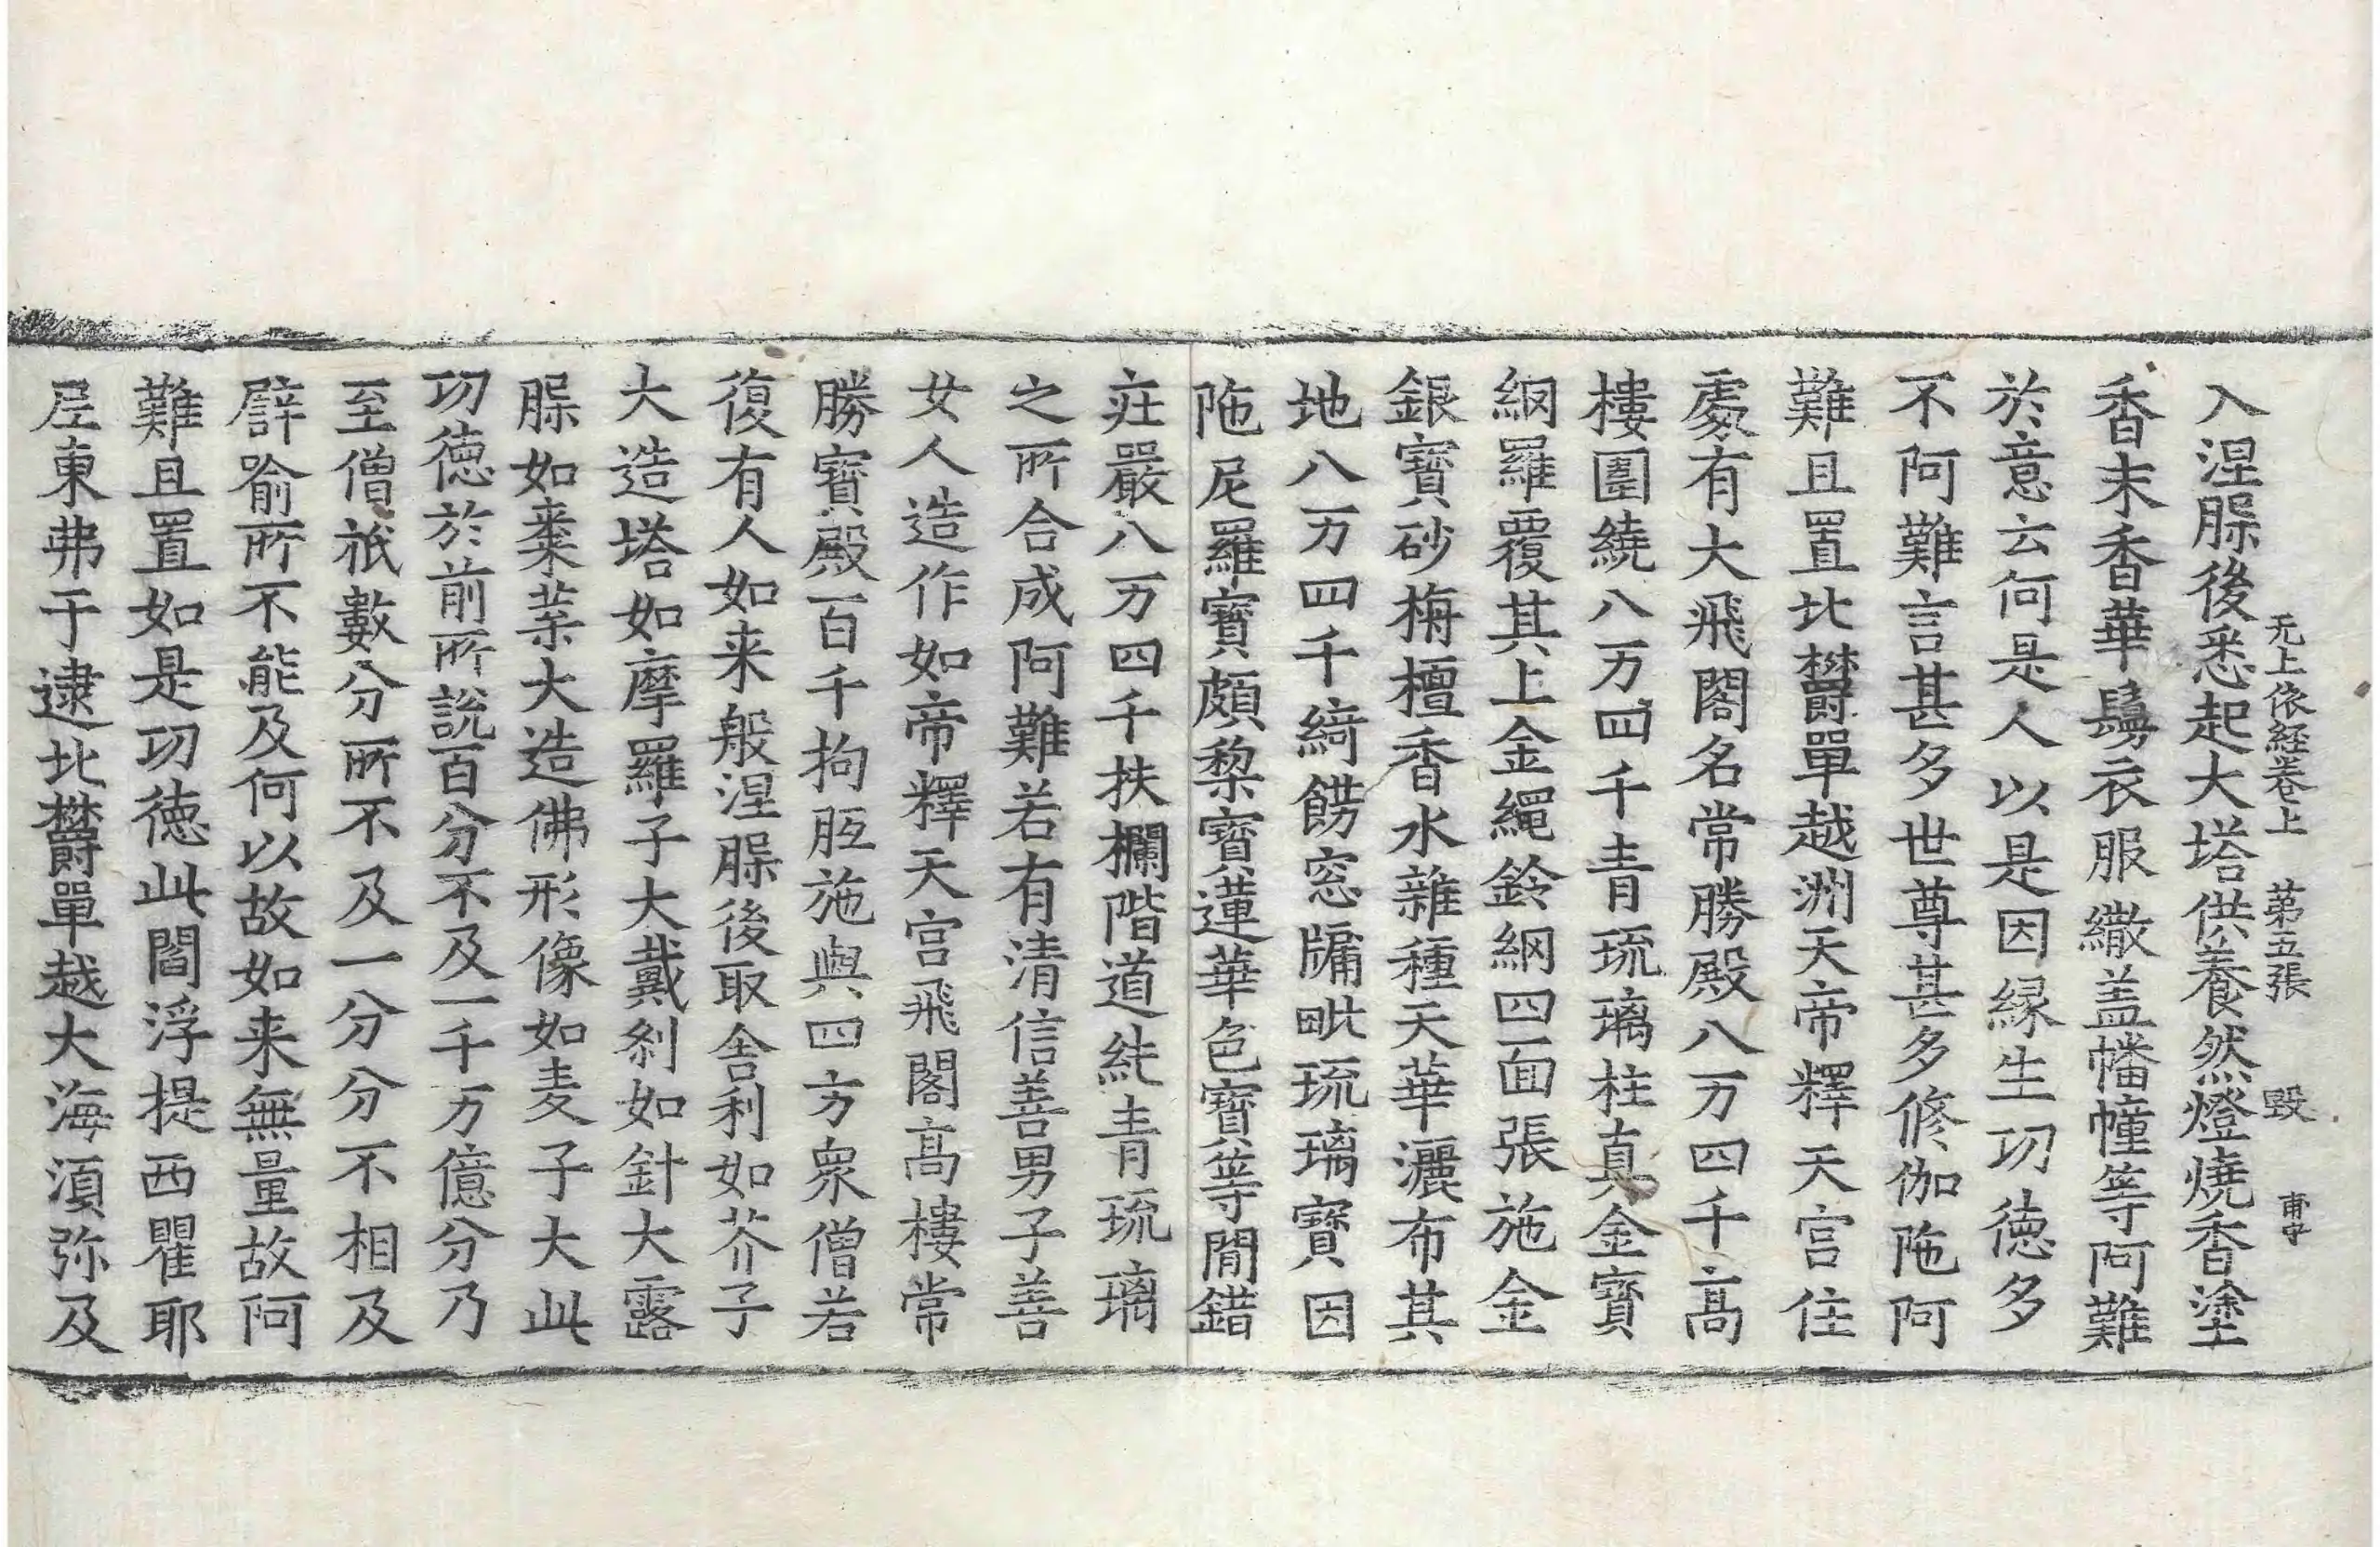 无上依經卷上 第五張 毀 甫守
入涅槃後悉起大塔供養然燈燒香塗
香末香華鬘衣服繖盖幡幢等阿難
於意云何是人以是因緣生功德多
不阿難言甚多世尊甚多修伽陁阿
難且置北欝單越洲天帝釋天宫住
處有大飛閣名常勝殿八万四千高
樓圍繞八万四千青琉璃柱真金寶
網羅覆其上金繩鈴網四面張施金
銀寶砂栴檀香水雜種天華灑布其
地八万四千綺飾窓牖毗琉璃寶因
陁尼羅寶頗棃寶蓮華色寶等閒錯
莊嚴八万四千扶欄階道純青琉璃
之所合成阿難若有清信善男子善
女人造作如帝釋天宫飛閣高樓常
勝寶殿百千拘胝施與四方衆僧若
復有人如来般涅槃後取舍利如芥子
大造塔如摩羅子大戴刹如針大露
槃如棗葉大造佛形像如麦子大此
功德於前所說百分不及一千万億分乃
至僧祇數分所不及一分分不相及
譬喻所不能及何以故如来無量故阿
難且置如是功德此閻浮提西瞿耶
尼東弗于逮北欝單越大海須弥及